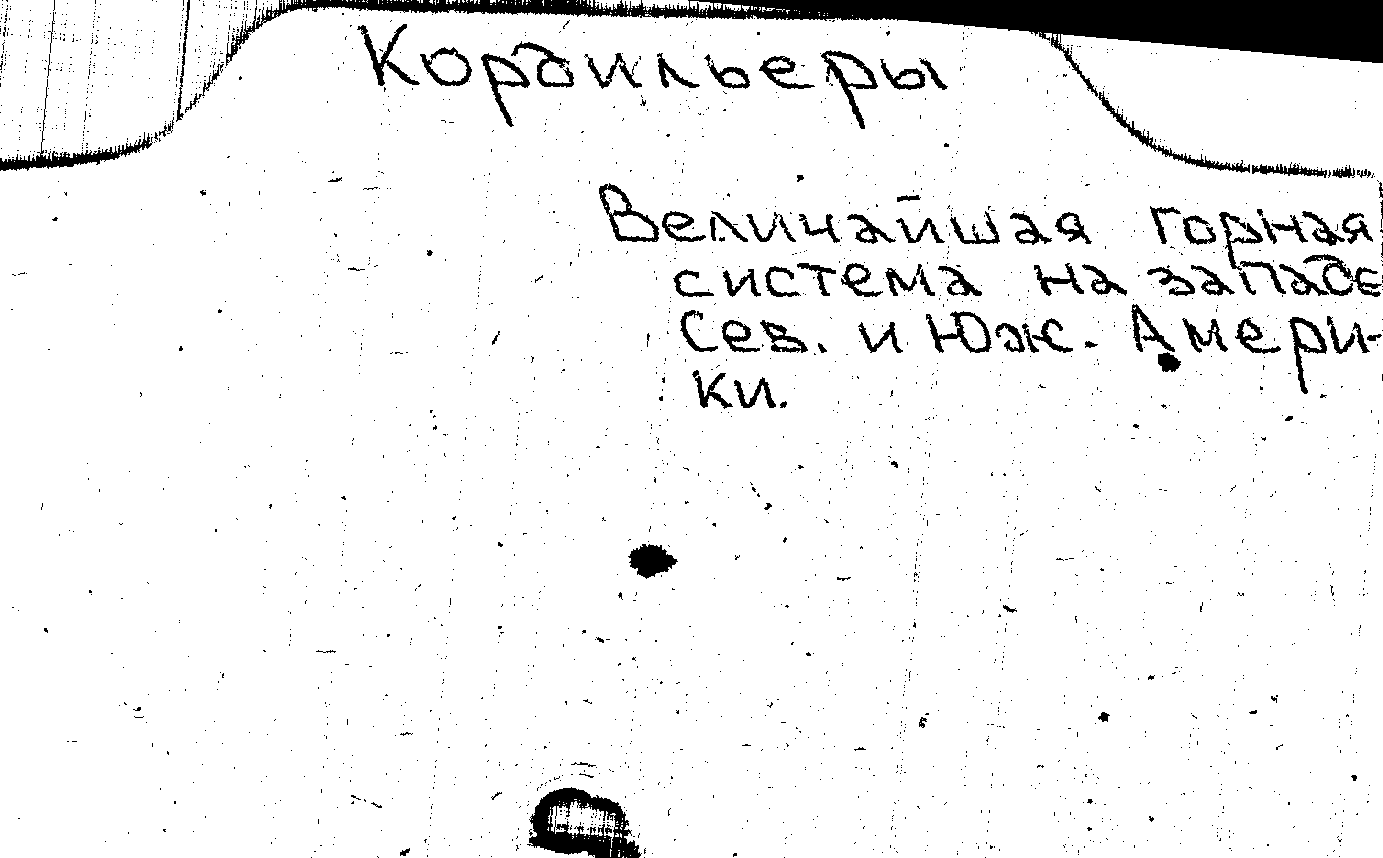 Кордильеры
Величайшая горная
система на западе
Сев. и Юж. Амери-
ки.